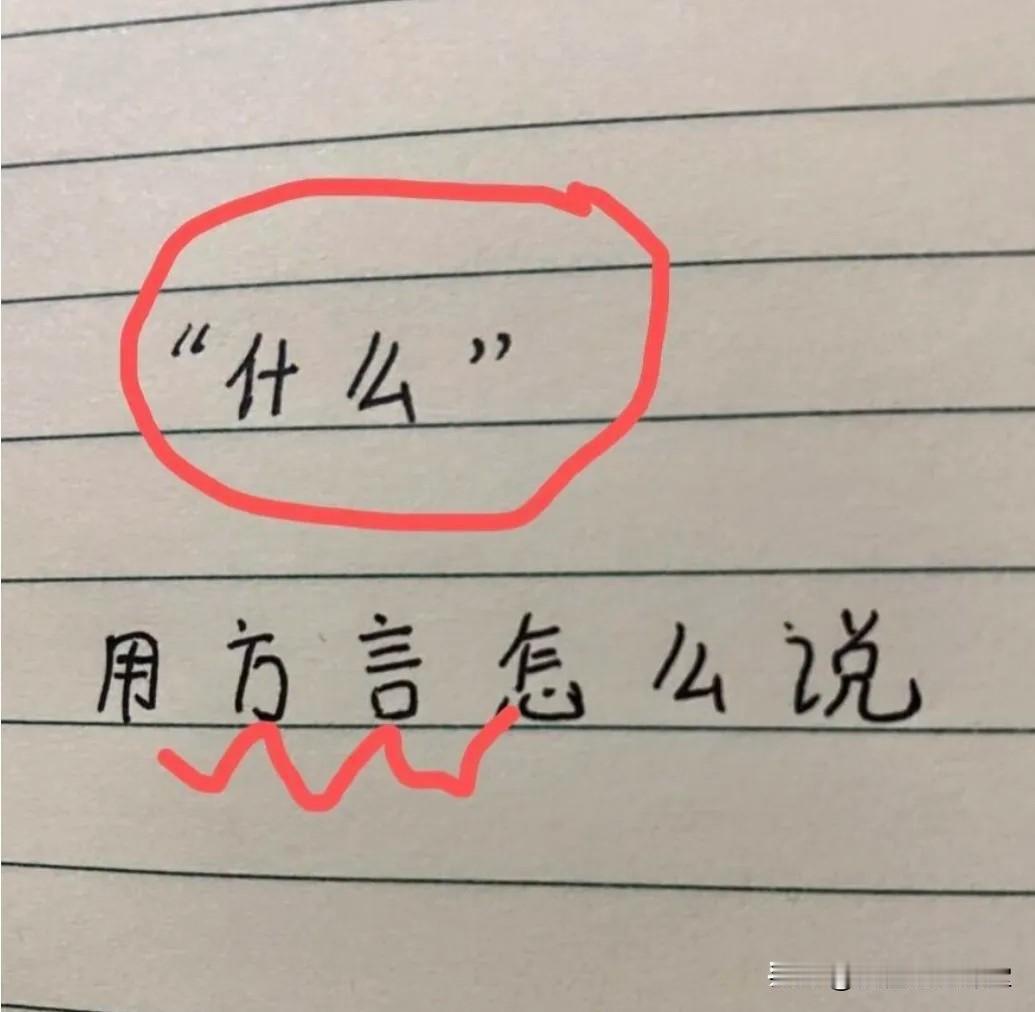 “什么”
用方言怎么说